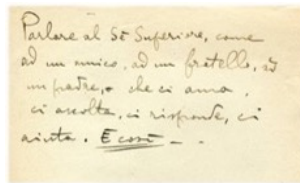 Parlare al Sè Superiore, come
ad un amico, ad un fratello, ad
un padre, che ci ama,
ci ascolta, ci risponde, ci
aiuta. E così - .